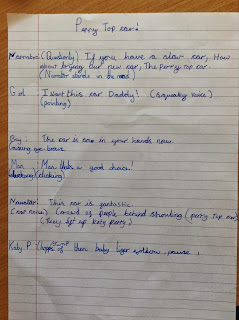 Perry Top car!
Narrator: (Quietly) If you have a slow car, How
about buying our new car, The perry top car.
(Narrator stands in the road)
Girl : I want this car Daddy! (Squeaky voice)
(pointing)
Boy : The car is now in your hands now.
Man : Man thats a good choice!
(clicking)
Narrator : This car is fantastic
(car noise) (crowd of people behind (perry Top car)
(They lift up katy perry)
Katy P : then baby pause ,